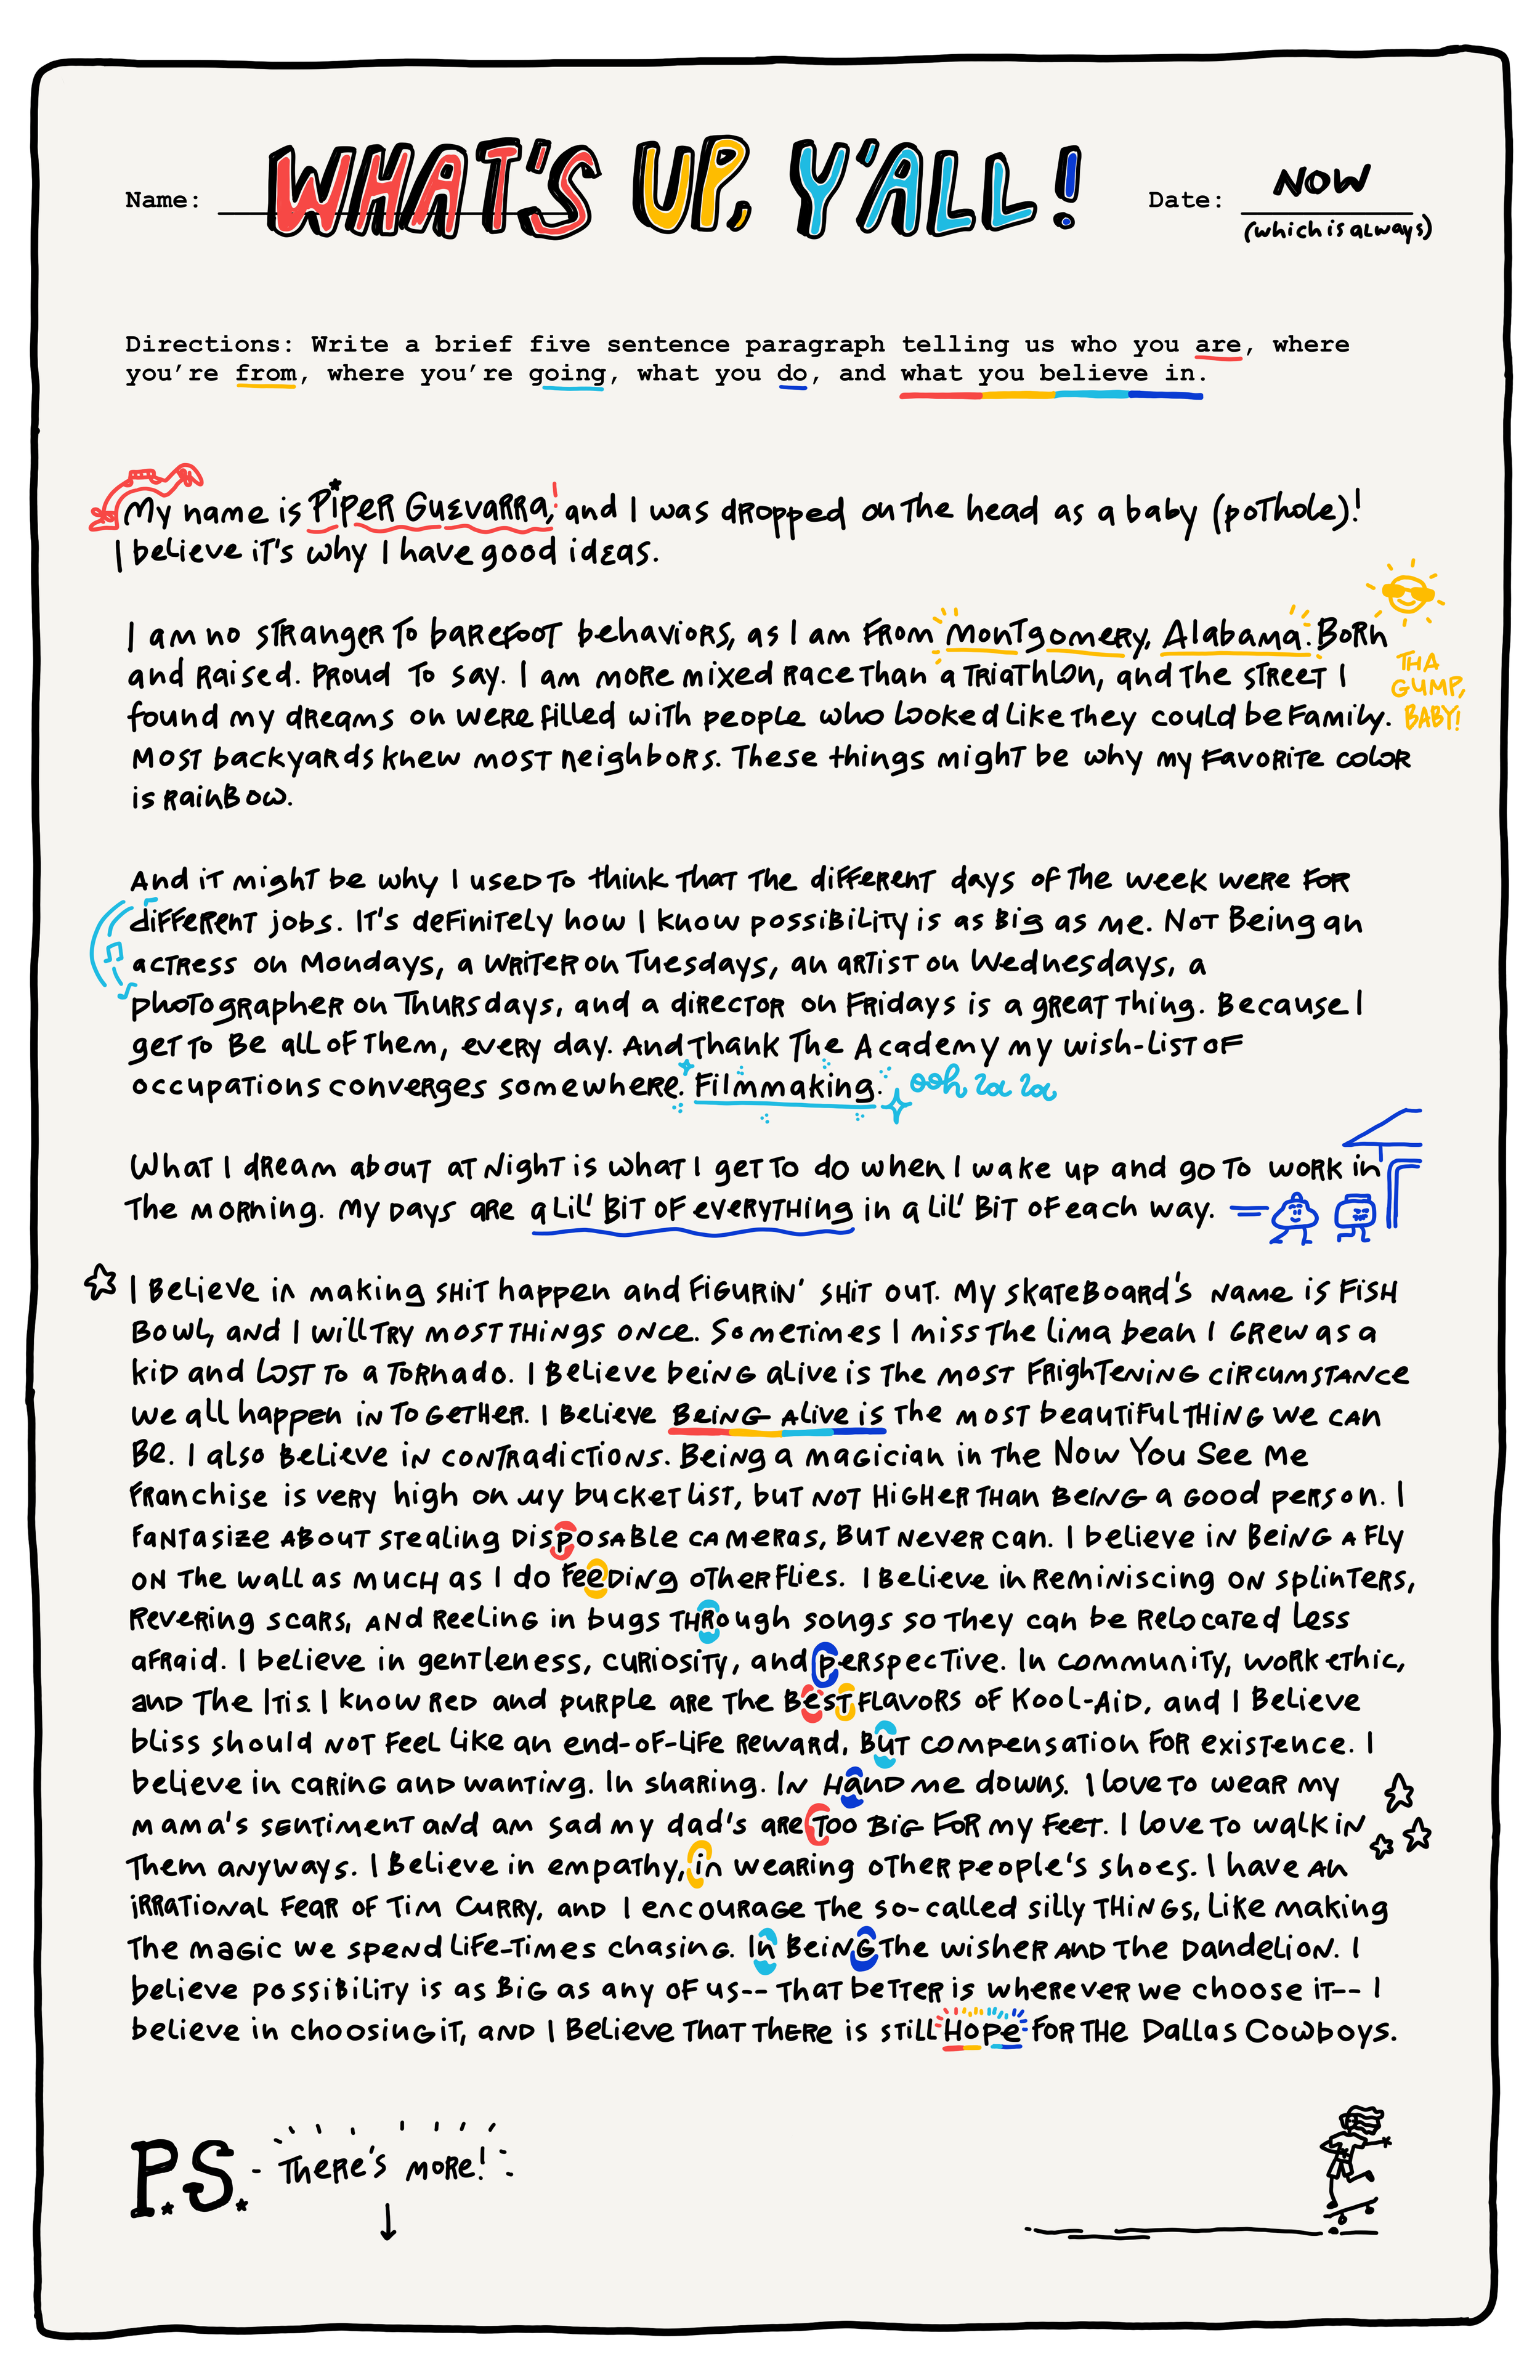 WHAT'S UP, Y'ALL!
Name:
Date: NOW
(which is always)
Directions: Write a brief five sentence paragraph telling us who you are, where
you're from, where you're going, what you do, and what you believe in.
My name is Piper Guevarra, and I was dropped on the head as a baby (pothole)!
I believe it's why I have good ideas.
I am no stranger to barefoot behaviors, as I am from Montgomery, Alabama. Born
and raised. Proud to say. I am more mixed race than a triathlon, and the street I
found my dreams on were filled with people who looked like they could be family.
Most backyards knew most neighbors. These things might be why my favorite color
is rainbow.
THA
GUMP,
BABY!
And it might be why I used to think that the different days of the week were for
different jobs. It's definitely how I know possibility is as big as me. Not being an
actress on Mondays, a writer on Tuesdays, an artist on Wednesdays, a
photographer on Thursdays, and a director on Fridays is a great thing. Because I
get to be all of them, every day. And thank The Academy my wish-list of
occupations converges somewhere. Filmmaking. ooh la la
What I dream about at night is what I get to do when I wake up and go to work in
the morning. My days are a lil' bit of everything in a lil' bit of each way.
I believe in making shit happen and figurin' shit out. My skateboard's name is Fish
Bowl, and I will try most things once. Sometimes I miss the lima bean I grew as a
kid and lost to a tornado. I believe being alive is the most frightening circumstance
we all happen in together. I believe being alive is the most beautiful thing we can
be. I also believe in contradictions. Being a magician in the Now You See Me
franchise is very high on my bucket list, but not higher than being a good person. I
fantasize about stealing disposable cameras, but never can. I believe in being a fly
on the wall as much as I do feeding other flies. I believe in reminiscing on splinters,
revering scars, and reeling in bugs through songs so they can be relocated less
afraid. I believe in gentleness, curiosity, and perspective. In community, work ethic,
and the Itis. I know red and purple are the best flavors of Kool-Aid, and I believe
bliss should not feel like an end-of-life reward, but compensation for existence. I
believe in caring and wanting. In sharing. In hand me downs. I love to wear my
mama's sentiment and am sad my dad's are too big for my feet. I love to walk in
them anyways. I believe in empathy, in wearing other people's shoes. I have an
irrational fear of Tim Curry, and I encourage the so-called silly things, like making
the magic we spend life-times chasing. In being the wisher and the dandelion. I
believe possibility is as big as any of us-- that better is wherever we choose it-- I
believe in choosing it, and I believe that there is still hope for the Dallas Cowboys.
P.S. - There's more!